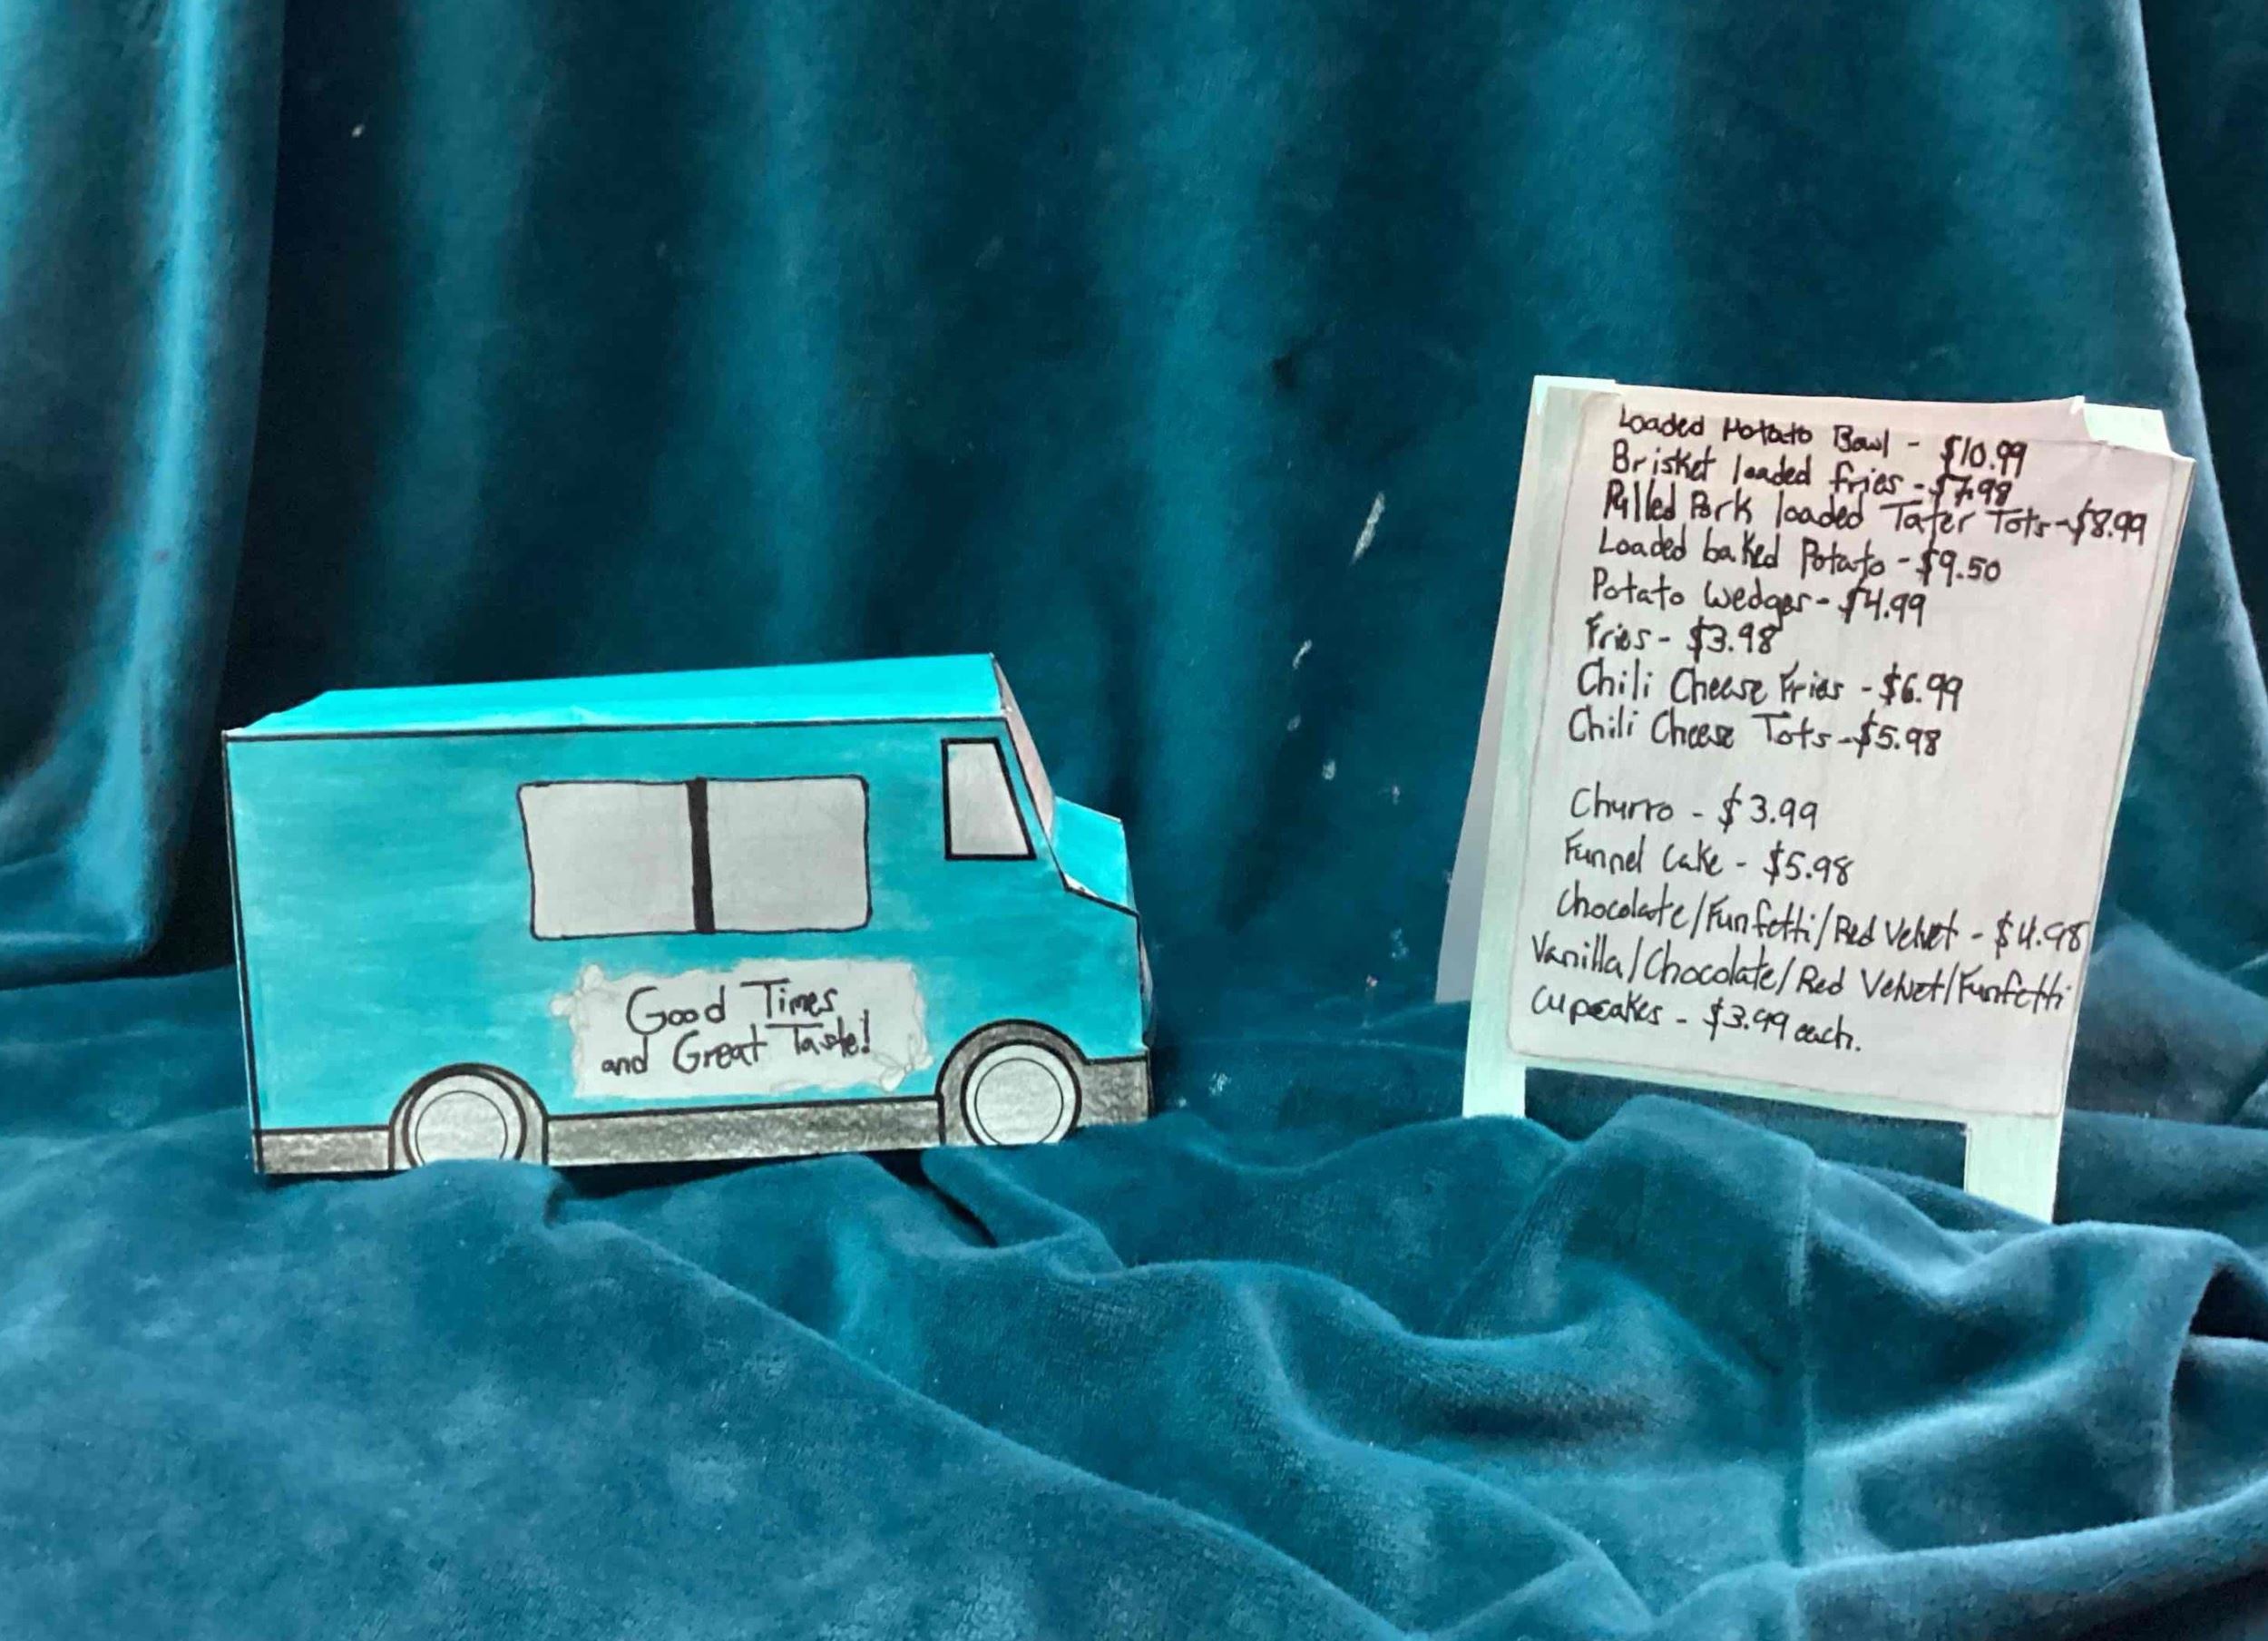 Good Times
and Great Taste!
Loaded Potato Bowl - $10.99
Brisket loaded fries - $7.98
Pulled Pork loaded Tater Tots - $8.99
Loaded baked Potato - $9.50
Potato Wedges - $4.99
Fries - $3.98
Chili Cheese Fries - $6.99
Chili Cheese Tots - $5.98
Churro - $3.99
Funnel Cake - $5.98
Chocolate/Funfetti/Red Velvet - $4.98
Vanilla/Chocolate/Red Velvet/Funfetti
Cupcakes - $3.99 each.